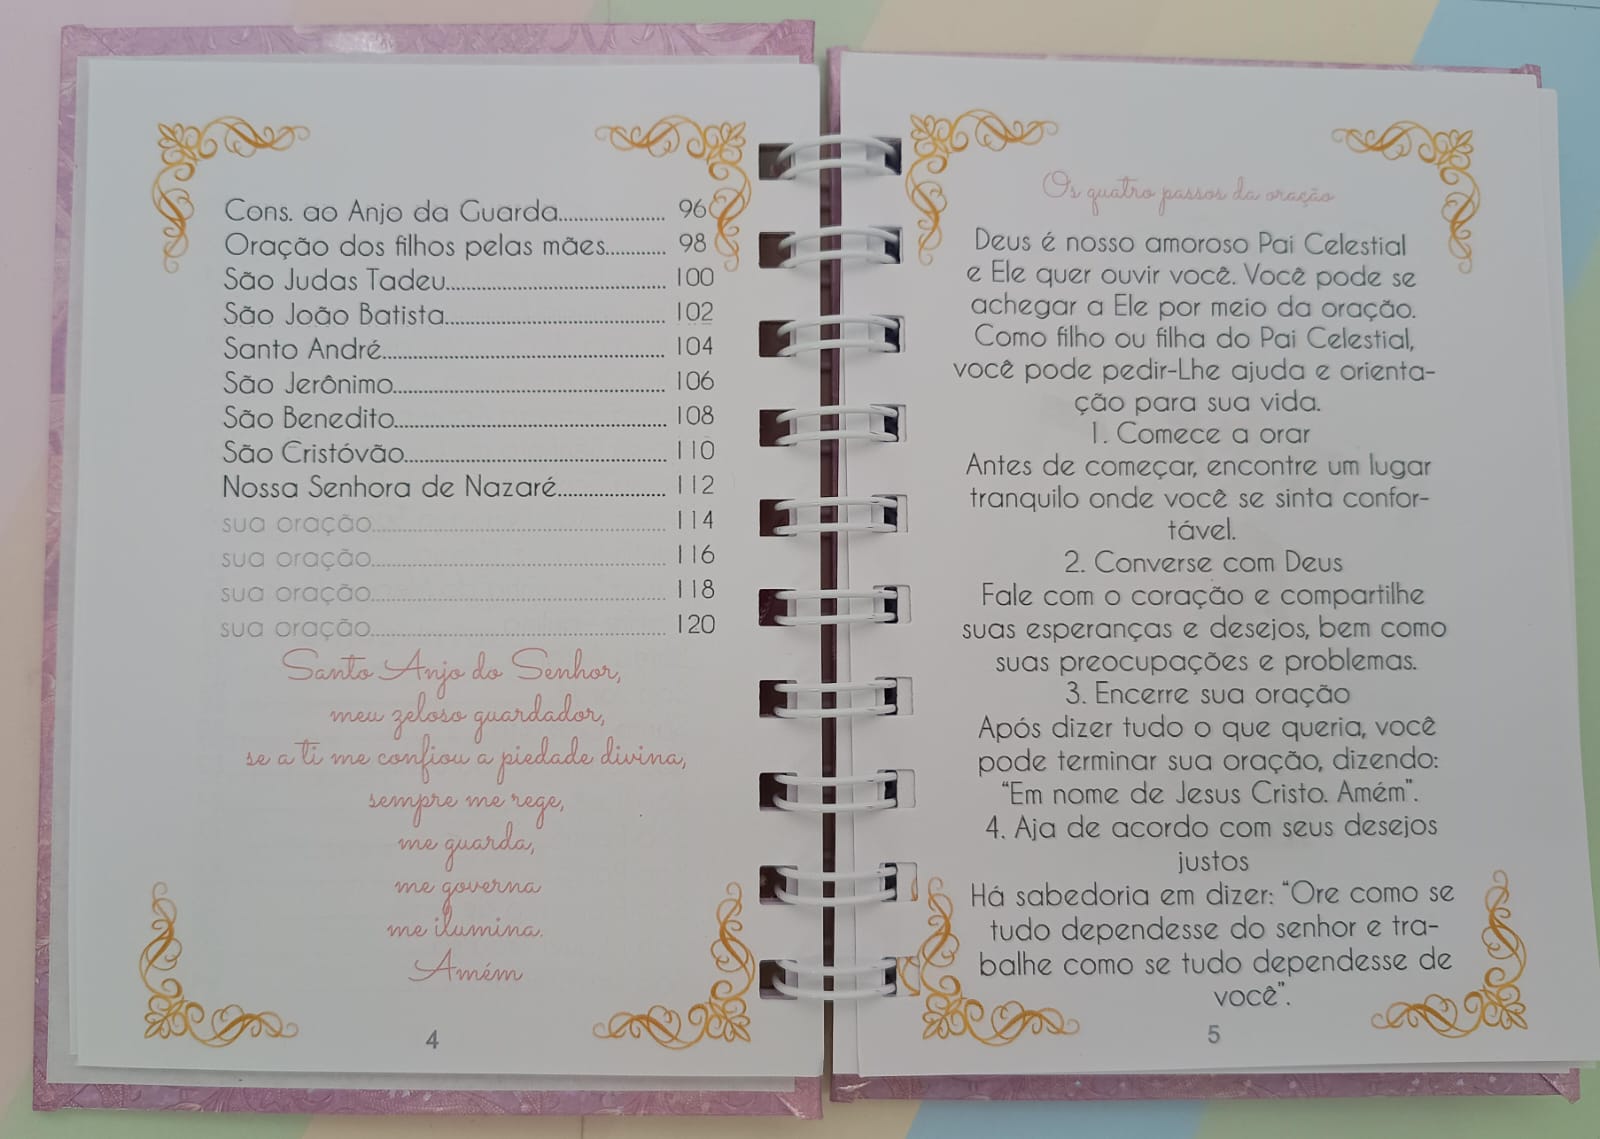 Cons. ao Anjo da Guarda..................... 96
Oração dos filhos pelas mães............ 98
São Judas Tadeu........................................... 100
São João Batista........................................... 102
Santo André....................................................... 104
São Jerônimo..................................................... 106
São Benedito..................................................... 108
São Cristóvão................................................... 110
Nossa Senhora de Nazaré..................... 112
sua oração......................................................... 114
sua oração......................................................... 116
sua oração......................................................... 118
sua oração......................................................... 120
Santo Anjo do Senhor,
meu zeloso guardador,
se a ti me confiou a piedade divina,
sempre me rege,
me guarda,
me governa
me ilumina.
Amém
4
Os quatro passos da oração
Deus é nosso amoroso Pai Celestial
e Ele quer ouvir você. Você pode se
achegar a Ele por meio da oração.
Como filho ou filha do Pai Celestial,
você pode pedir-Lhe ajuda e orienta-
ção para sua vida.
1. Comece a orar
Antes de começar, encontre um lugar
tranquilo onde você se sinta confor-
tável.
2. Converse com Deus
Fale com o coração e compartilhe
suas esperanças e desejos, bem como
suas preocupações e problemas.
3. Encerre sua oração
Após dizer tudo o que queria, você
pode terminar sua oração, dizendo:
“Em nome de Jesus Cristo. Amém”.
4. Aja de acordo com seus desejos
justos
Há sabedoria em dizer: “Ore como se
tudo dependesse do senhor e tra-
balhe como se tudo dependesse de
você”.
5